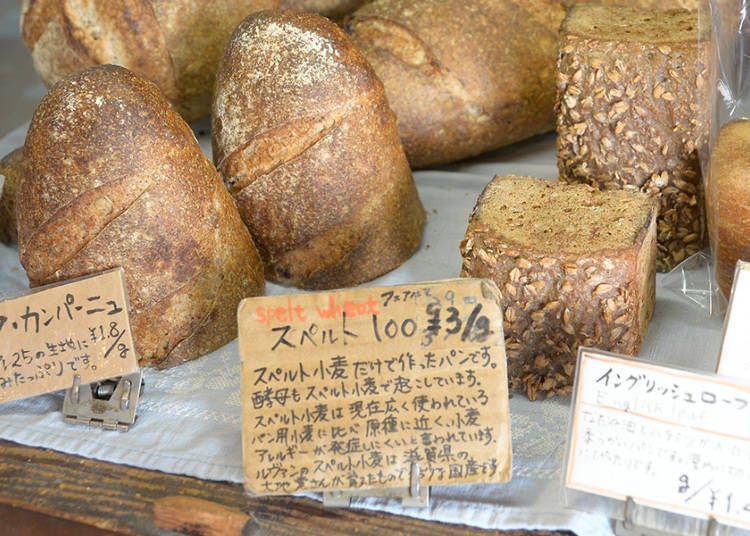 ア・カンパーニュ
25の生地に ¥1.8/g
みたっぷりです。
spelt wheat
スペルト 100 ¥3/g
スペルト小麦だけで作ったパンです。
酵母もスペルト小麦で起こしています。
スペルト小麦は現在広く使われている
パン用小麦に比べ原種に近く、小麦
アレルギーが発症しにくいと言われています。
ルヴァンのスペルト小麦は滋賀県の
さんが育てたもので 国産です
イングリッシュローフ
English loaf
g/¥1.